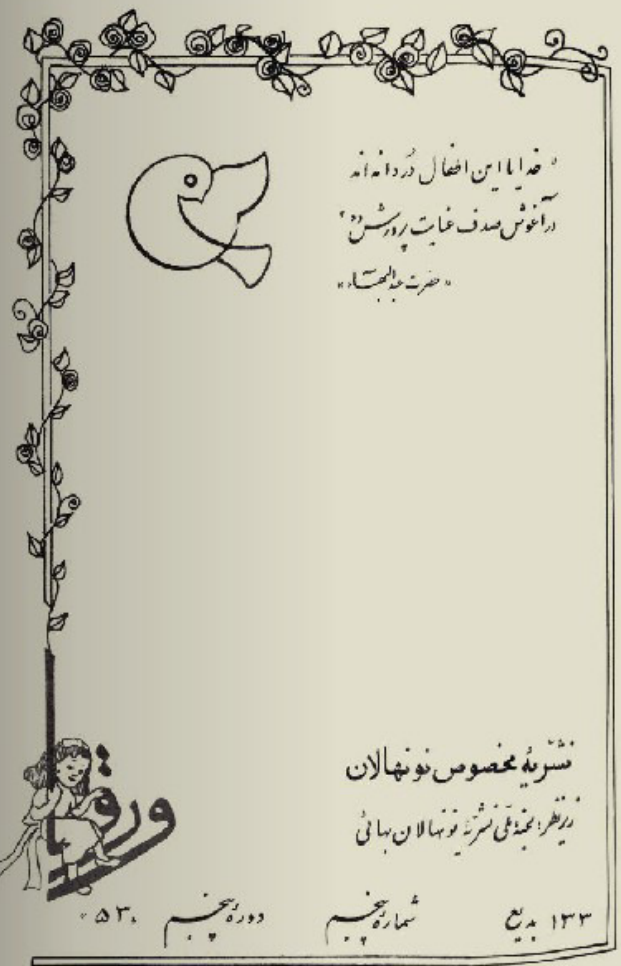 « خدایا این اطفال دُردانه‌اند
در آغوش صدف عنایت پرورش ده »
« حضرت عبدالبهاء »
ورقا
نشریهٔ مخصوص نونهالان
زیر نظر: لجنهٔ ملی نشریهٔ نونهالان بهائی
۱۳۳ بدیع شمارهٔ پنجم دورهٔ پنجم «۵۳»